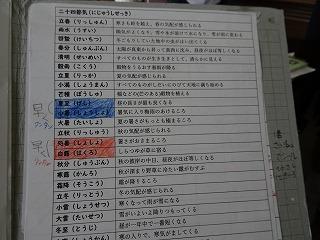 二十四節気(にじゅうしせっき)
立春(りっしゅん) 寒さも峠を越え、春の気配が感じられる
雨水(うすい) 陽気がよくなり、雪や氷が溶けて水になり、雪が雨に変わる
啓蟄(けいちつ) 冬ごもりしていた地中の虫がはい出てくる
春分(しゅんぶん) 太陽が真東から昇って真西に沈み、昼夜がほぼ等しくなる
清明(せいめい) すべてのものが生き生きとして、清らかに見える
穀雨(こくう) 穀物をうるおす春雨が降る
立夏(りっか) 夏の気配が感じられる
小満(しょうまん) すべてのものがしだいにのびて天地に満ち始める
芒種(ぼうしゅ) 稲などの(芒のある)穀物を植える
夏至(げし) 昼の長さが最も長くなる
小暑(しょうしょ) 暑気に入り梅雨のあけるころ
大暑(たいしょ) 夏の暑さがもっとも極まるころ
立秋(りっしゅう) 秋の気配が感じられる
処暑(しょしょ) 暑さがおさまるころ
白露(はくろ) しらつゆが草に宿る
秋分(しゅうぶん) 秋の彼岸の中日、昼夜がほぼ等しくなる
寒露(かんろ) 秋が深まり野草に冷たい露がむすぶ
霜降(そうこう) 霜が降りるころ
立冬(りっとう) 冬の気配が感じられる
小雪(しょうせつ) 寒くなって雨が雪になる
大雪(たいせつ) 雪がいよいよ降りつもってくる
冬至(とうじ) 昼が一年中で一番短くなる
寒の入りで、寒気がましてくる